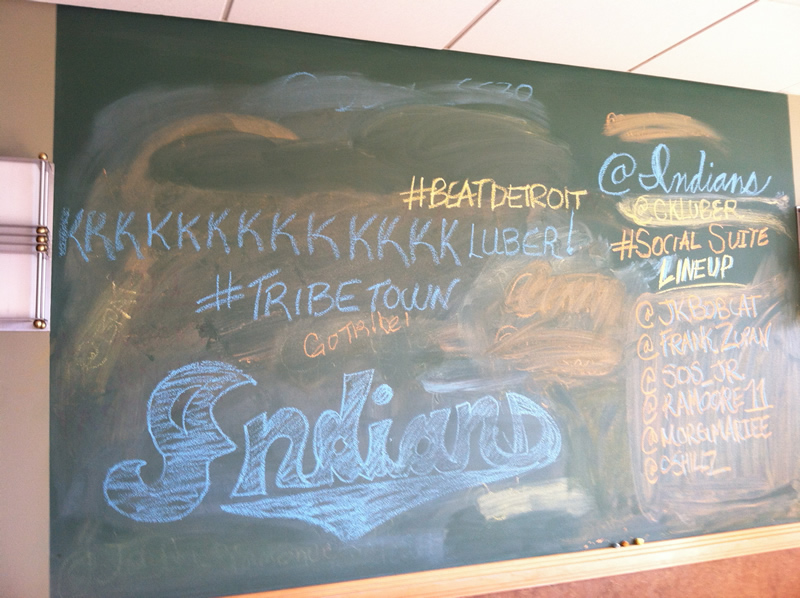 #BEATDETROIT
KKKKKKKKKKKKKLUBER!
#TRIBETOWN
GOTRIBE!
Indians
@Indians
@CKLUBER
#SOCIAL SUITE
LINEUP
@JKBOBCAT
@FRANK_ZUPAN
@SDS_JR
@RAMOORE11
@OSHILLZ